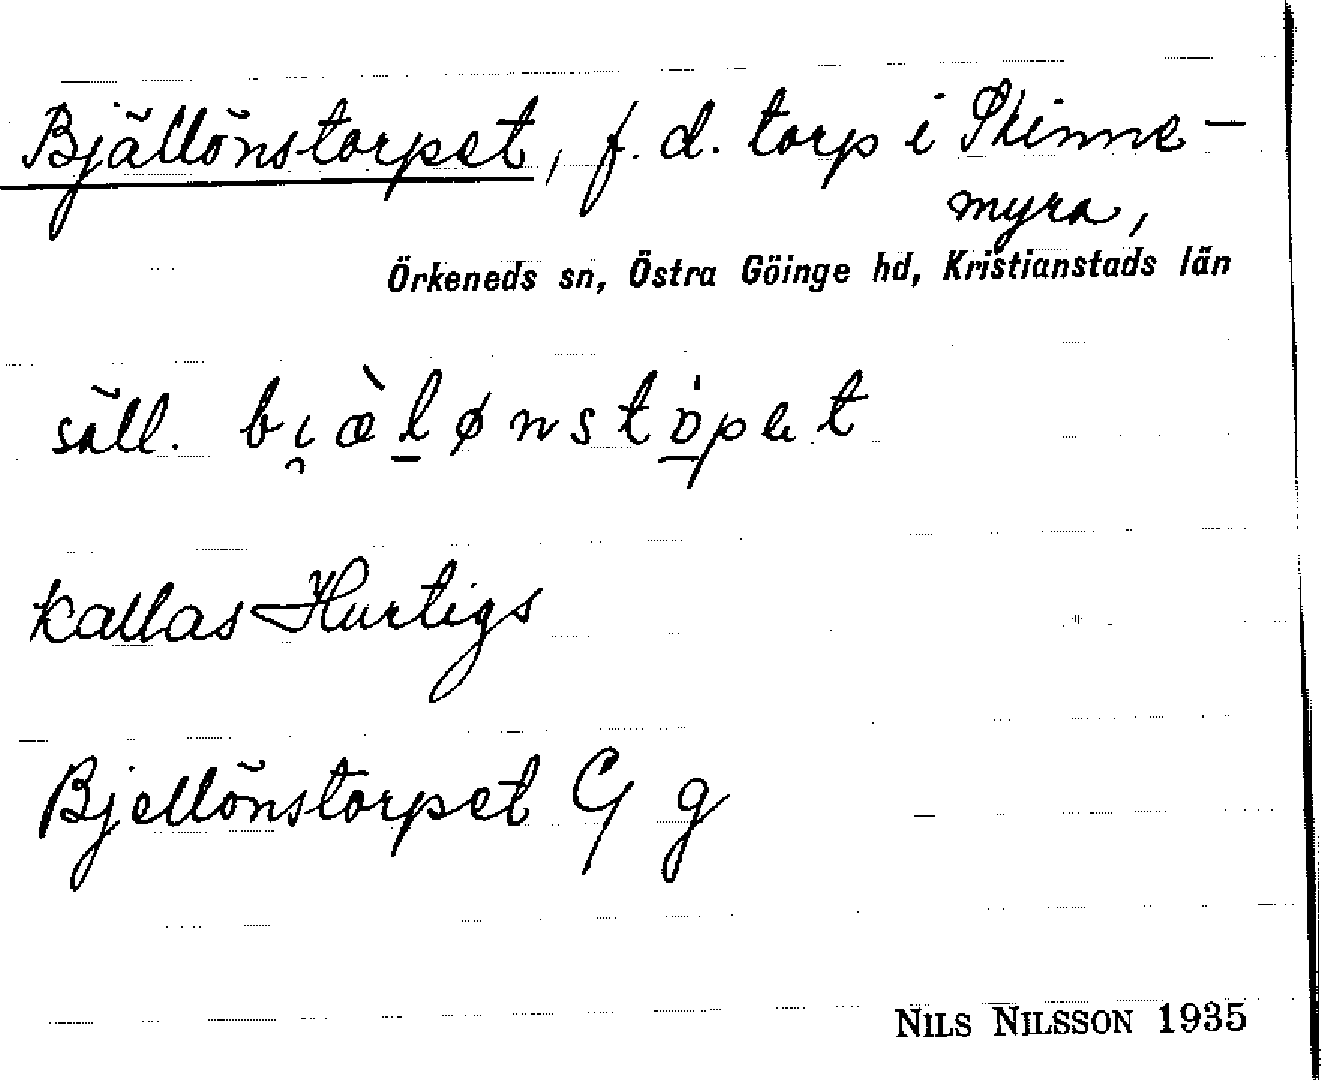 Bjällönstorpet, f. d. torp i Skinne-
myra,
Örkeneds sn, Östra Göinge hd, Kristianstads län
säll.
kallas Hurtigs
Bjellönstorpet G g
NILS NILSSON 1935